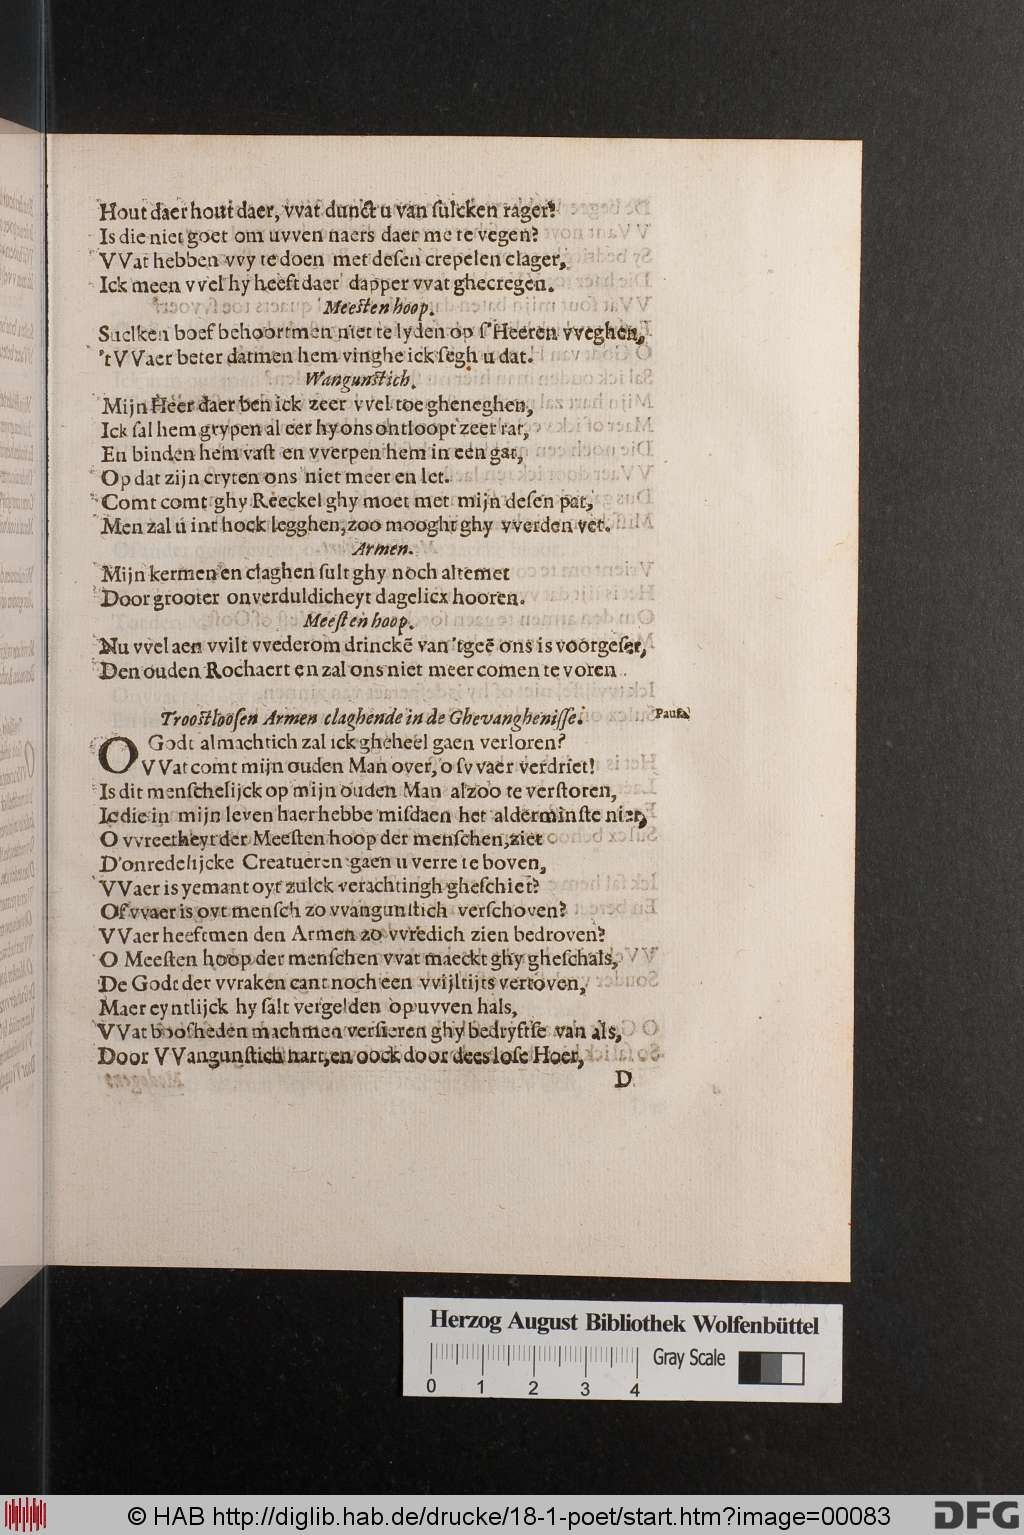 Hout daer hout daer, vvat dunct u van ſulcken rager?
Is die niet goet om uvven naers daer me te vegen?
VVat hebben vvy te doen met deſen crepelen clager,
Ick meen vvel hy heeft daer dapper vvat ghecregen.
Meeſten hoop.
Suelken boef behoortmen niet te lyden op ſ'Heeren vveghen,
'tVVaer beter datmen hem vinghe ick ſegh u dat.
Wangunſtich.
Mijn Heer daer ben ick zeer vvel toe gheneghen,
Ick ſal hem grypen al eer hy ons ontloopt zeer rat,
En binden hem vaſt en vverpen hem in een gat,
Op dat zijn cryten ons niet meer en let.
Comt comt ghy Reeckel ghy moet met mijn deſen pat,
Men zal u int hock legghen, zoo mooght ghy vverden vet.
Armen.
Mijn kermen en claghen ſult ghy noch altemet
Door grooter onverduldicheyt dagelicx hooren.
Meeſten hoop.
Nu vvel aen vvilt vvederom drinckē van 'tgeē ons is voorgeſet,
Den ouden Rochaert en zal ons niet meer comen te voren.
Trooſtlooſen Armen claghende in de Ghevangheniſſe. Pauſa.
O Godt almachtich zal ick gheheel gaen verloren?
VVat comt mijn ouden Man over, o ſvvaer verdriet!
Is dit menſchelijck op mijn ouden Man alzoo te verſtoren,
Ic die in mijn leven haer hebbe miſdaen het alderminſte niet,
O vvreetheyt der Meeſten hoop der menſchen, ziet
D'onredelijcke Creatueren gaen u verre te boven,
VVaer is yemant oyt zulck verachtingh gheſchiet?
Of vvaer is oyt menſch zo vvangunſtich verſchoven?
VVaer heeftmen den Armen zo vvredich zien bedroven?
O Meeſten hoop der menſchen vvat maeckt ghy gheſchals,
De Godt der vvraken cant noch een vvijltijts vertoven,
Maer eyntlijck hy ſalt vergelden op uvven hals,
VVat booſheden machmen verſieren ghy bedryftſe van als,
Door VVangunſtich hart, en oock door dees loſe Hoer,
D
Herzog August Bibliothek Wolfenbüttel
Gray Scale
0 1 2 3 4
© HAB http://diglib.hab.de/drucke/18-1-poet/start.htm?image=00083
DFG